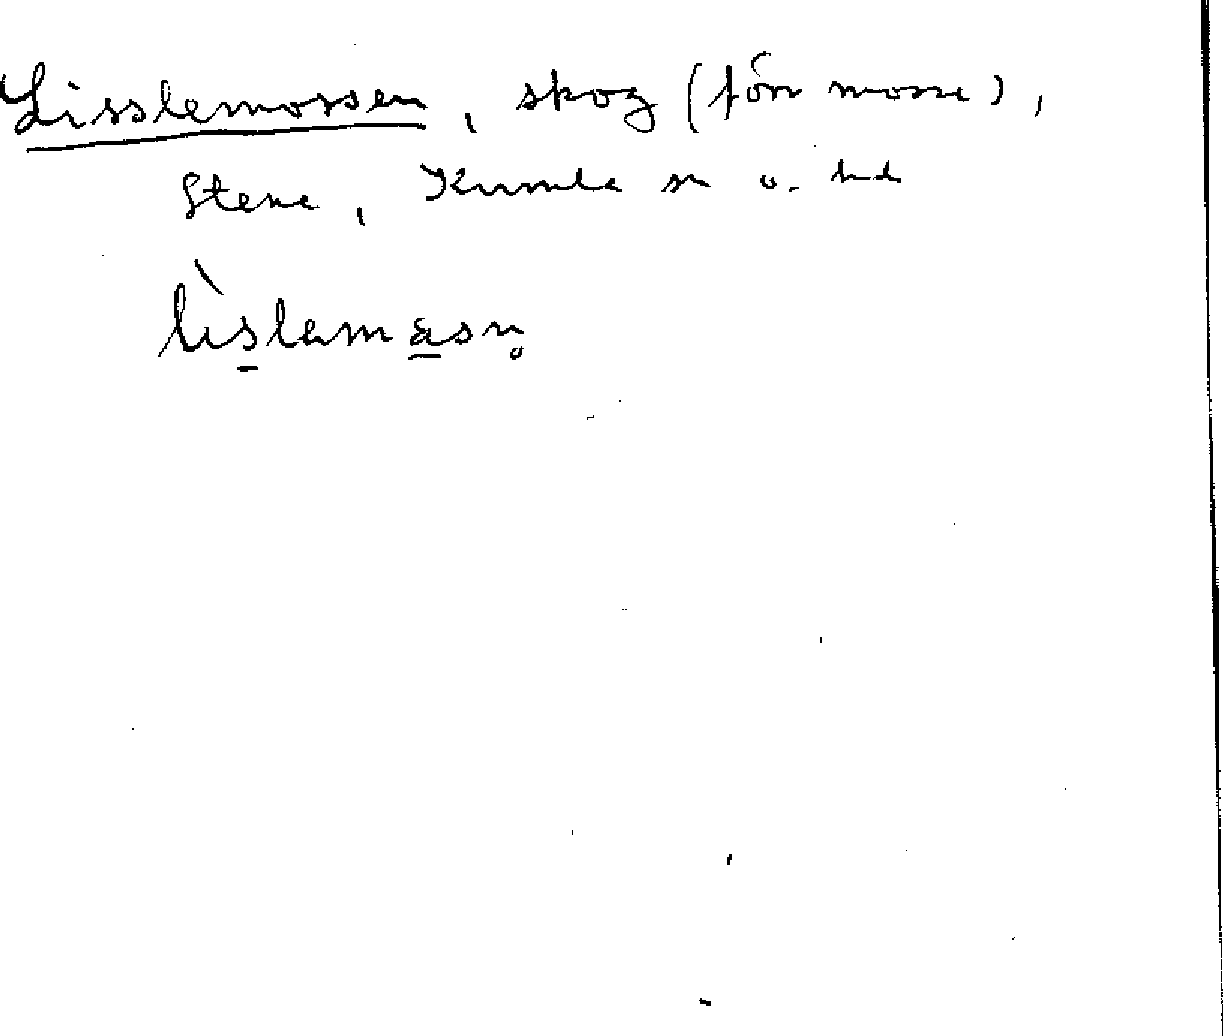 Lisslemossen, skog (förr mosse),
Stene, Kumla sn o. hd
lìslamåsn̥